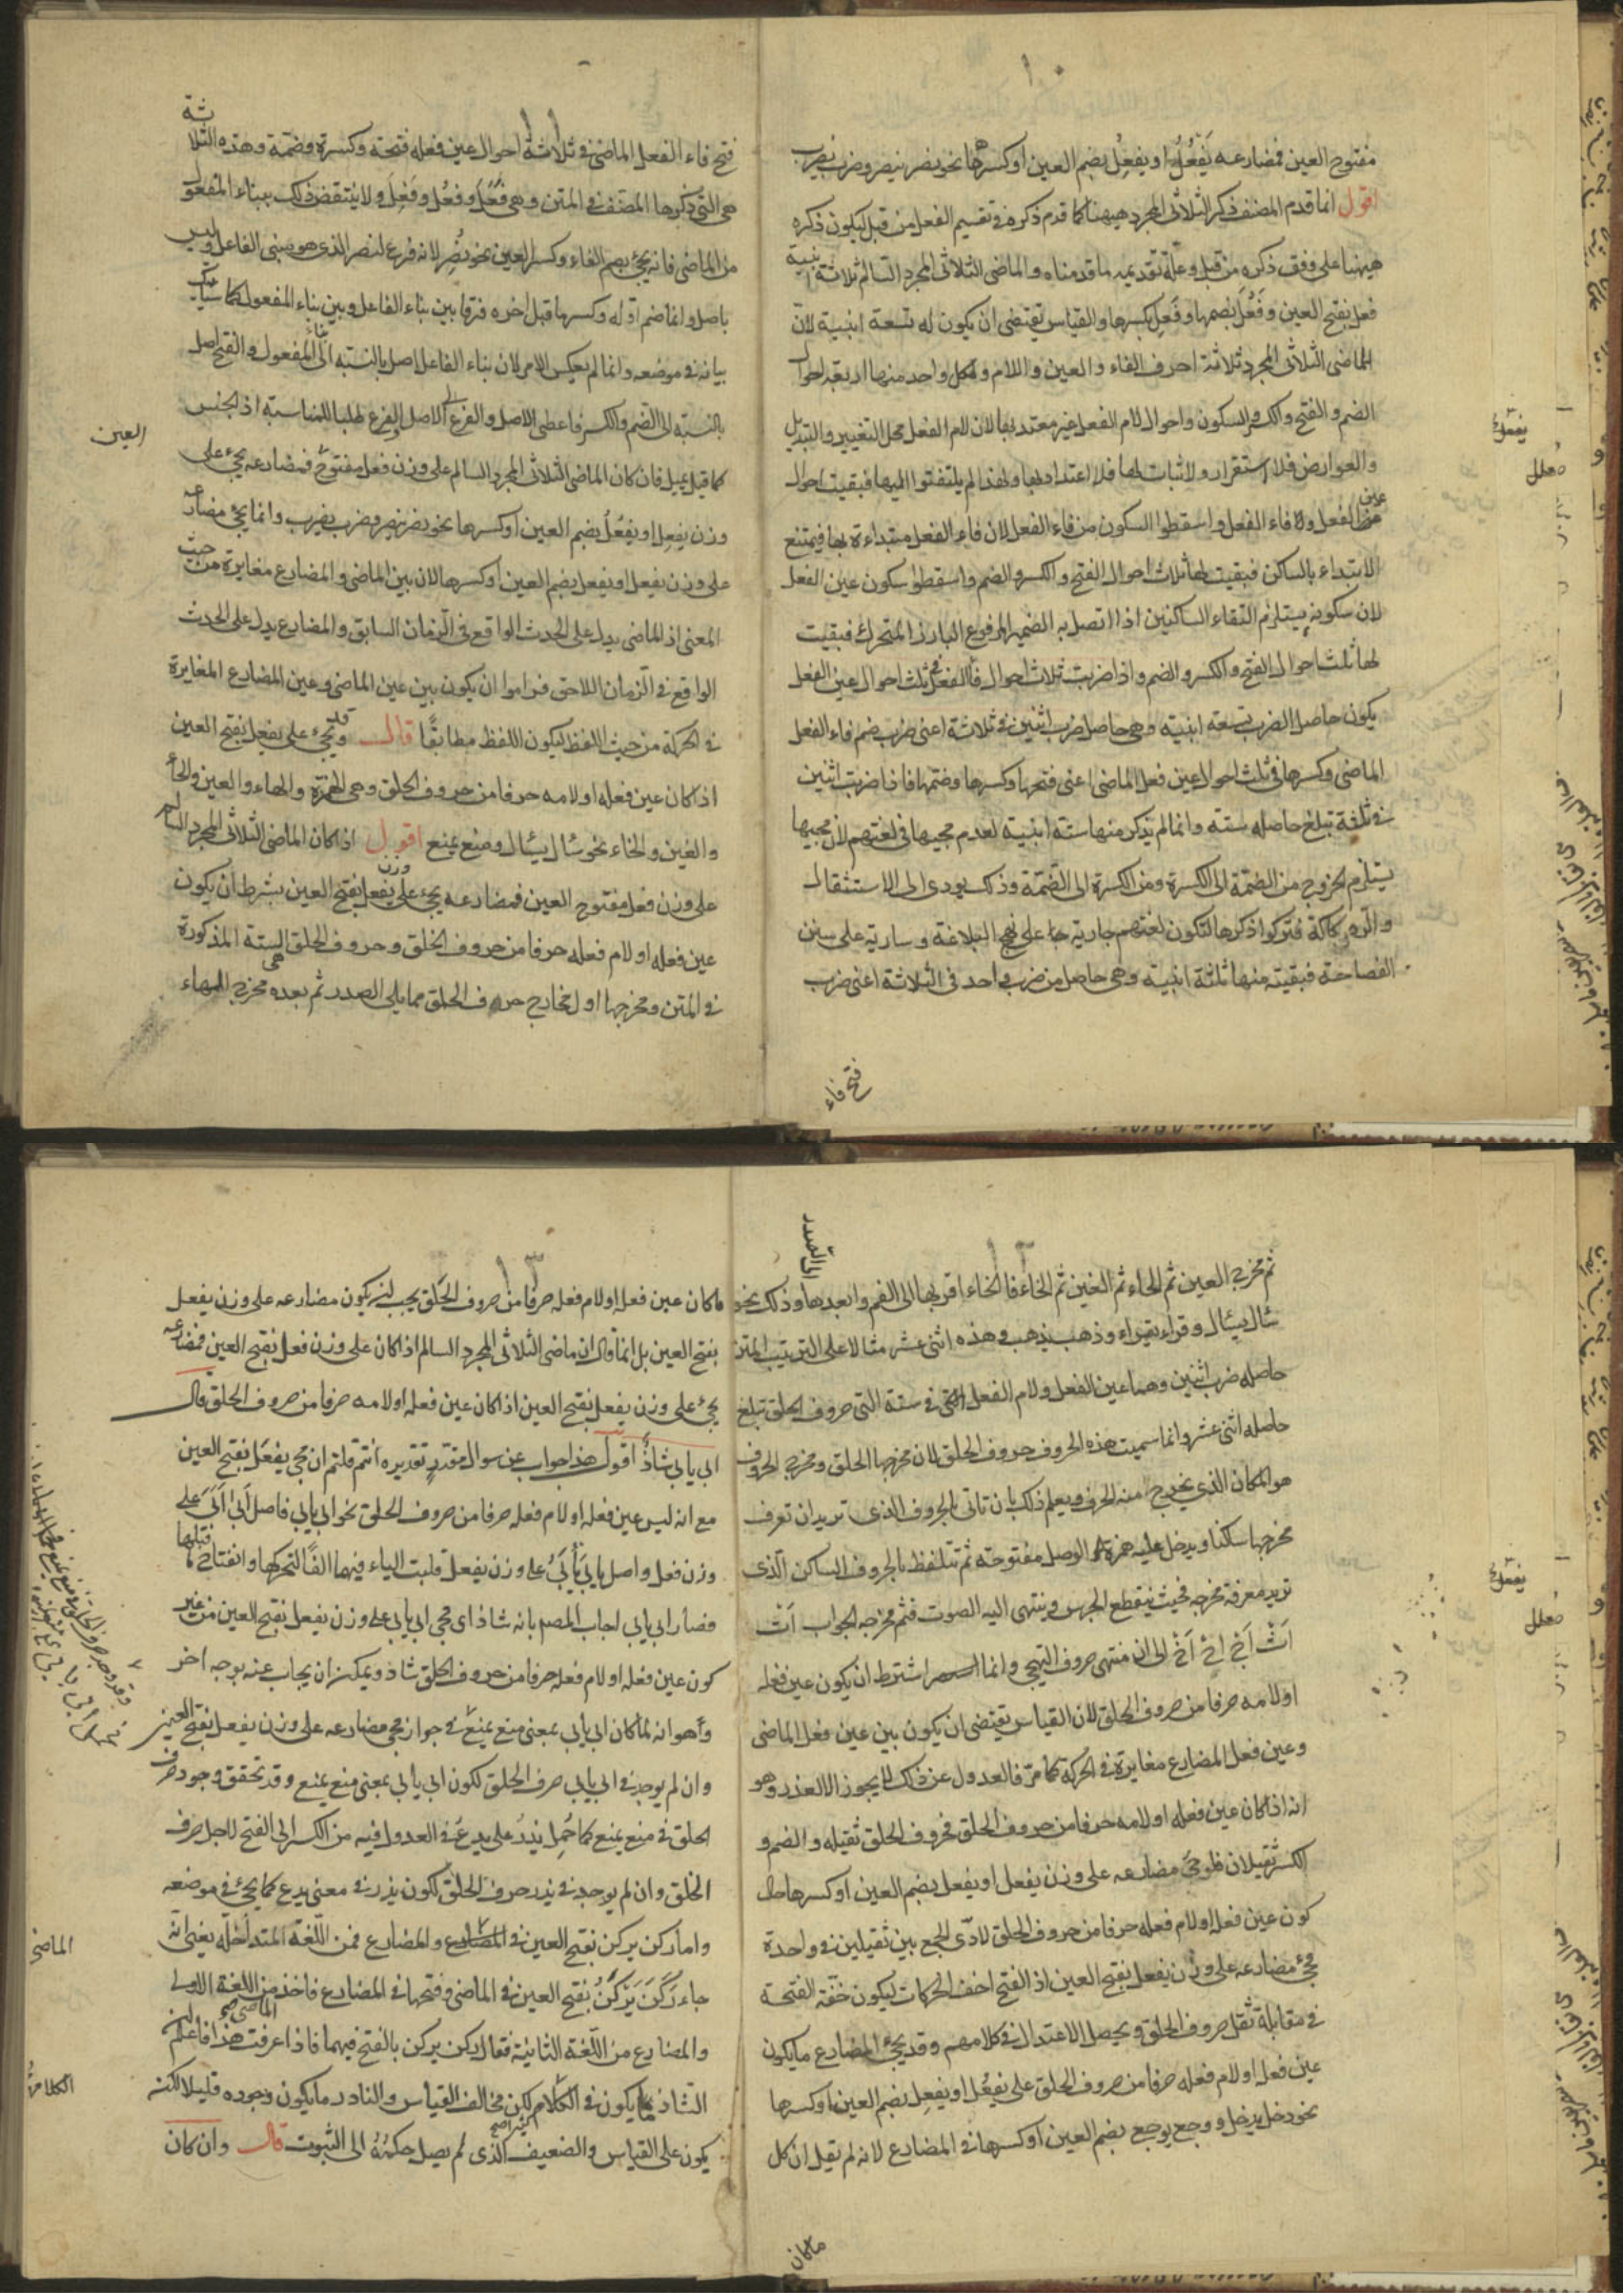 ١٠
مفتوح العين فمضارعه يَفْعُلُ او يفعِلُ بضم العين او كسرها نحو نصر ينصر وضرب يضرب
اقول انما قدم المصنف ذكر الثلاثى المجرد ههنا كما قدم ذكره فى تقسيم الفعل من قبل ليكون ذكره
ههنا على وفق ذكره من قبل وعلّة تقديمه ما قدمناه والماضى الثلاثى المجرد السالم ثلاثة ابنية
فعل بفتح العين وفَعُلَ بضمها وفَعِل بكسرها والقياس يقتضى ان يكون له تسعة ابنية لان
الماضى الثلاثى المجرد ثلاثة احرف الفاء والعين واللام ولكل واحد منها اربعة احوال
الضم والفتح والكسر والسكون واحوال لام الفعل غير معتد بها لان لام الفعل محل التغيير والتبديل
والعوارض فلا استقرار ولا ثبات لها فلا اعتداد بها ولهذا لم يلتفتوا اليها فبقيت احوال
عين الفعل و فاء الفعل واسقطوا السكون من فاء الفعل لان فاء الفعل مبتداءة بها فيمتنع
الابتداء بالساكن فبقيت لها ثلاث احوال الفتح والكسر والضم واسقطوا سكون عين الفعل
لان سكونه يستلزم التقاء الساكنين اذا اتصل به الضمير المرفوع البارز المتحرك فبقيت
لها ثلث احوال الفتح والكسر والضم واذا ضربت ثلاث احوال فاء الفعل فى ثلث احوال عين الفعل
يكون حاصل الضرب تسعة ابنيته وهى حاصل ضرب اثنين فى ثلاثة اعنى ضرب ضم فاء الفعل
الماضى وكسرها فى ثلث احوال عين فعل الماضى اعنى فتحها وكسرها وضمها فاذا ضربت اثنين
فى ثلثة تبلغ حاصله ستة وانما لم يذكر منها ستة ابنية لعدم مجيها فى لغتهم لان مجيها
يستلزم الخروج من الضمة الى الكسرة ومن الكسرة الى الضمة وذلك يودى الى الاستثقال
والركاكة فتركوا ذكرها لتكون لغتهم جارية على نهج البلاغة وسارية على سنن
الفصاحة فبقيت منها ثلثة ابنية وهى حاصل من ضرب واحد فى الثلاثة اعنى ضرب
فتح فاء
١١
فتح فاء الفعل الماضى فى ثلاثة احوال عين فعله فتحة وكسرة وضمة وهذه الثلاثة
هى التى ذكرها المصنف فى المتن وهى فَعَلَ وفعُل وفَعِلَ ولا ينتقض ذلك ببناء المفعول
من الماضى فانه يجئ بضم الفاء وكسر العين نحو نُصِر لانه فرع لنصر الذى هو مبنى الفاعل وليس
باصل وانما ضم اوّله وكسر ما قبل اخره فرقا بين بناء الفاعل وبين بناء المفعول كما سيأتيك
بيانه فى موضعه وانما لم يعكس الامر لان بناء الفاعل اصل بالنسبة الى بناء المفعول والفتح اصل
بالنسبة الى الضم والكسر فاعطى الاصل الاصل والفرع الفرع طلبا للمناسبة اذ الجنس
كما قيل يميل فان كان الماضى الثلاثى المجرد السالم على وزن فعل مفتوح العين فمضارعه يجئ على
وزن يفعِل او يفعُلُ بضم العين او كسرها نحو نصر ينصر وضرب يضرب وانما يجئ مضارعه
على وزن يفعل او يفعل بضم العين او كسرها لان بين الماضى والمضارع مغايرة من حيث
المعنى اذ الماضى يدل على الحدث الواقع فى الزمان السابق والمضارع يدل على الحدث
الواقع فى الزمان اللاحق فراموا ان يكون بين عين الماضى وعين المضارع المغايرة
فى الحركة من حيث اللفظ ليكون اللفظ مطابقًا قال وقد يجئ على يفعل بفتح العين
اذا كان عين فعله او لامه حرفا من حروف الحلق وهى الهمزة والهاء والعين والحاء
والغين والخاء نحو سأل يسأل ومنع يمنع اقول اذا كان الماضى الثلاثى المجرد السالم
على وزن فعل مفتوح العين فمضارعه يجئ على وزن يفعل بفتح العين بشرط ان يكون
عين فعله او لام فعله حرفا من حروف الحلق وحروف الحلق هى الستة المذكورة
فى المتن ومخرجها اول مخارج حروف الحلق مما يلى الصدر ثم بعده مخرج الهاء
١٢
ثم مخرج العين ثم الحاء ثم الغين ثم الخاء فالخاء اقربها الى الفم وابعدها الى الصدر وذلك نحو
سأل يسأل وقراء يقراء وذهب يذهب وهذه اثنى عشر مثالا على الترتيب المتن
حاصله ضرب اثنين وهما عين الفعل ولام الفعل فى ستة التى حروف الحلق تبلغ
حاصله اثنى عشر وانما سميت هذه الحروف حروف الحلق لان مخرجها الحلق ومخرج الحروف
هو المكان الذى يخرج منه الحرف ويعلم ذلك بان تاتى بالحروف الذى تريد ان تعرف
مخرجها ساكنا ويدخل عليه همزة الوصل مفتوحة ثم تتلفظ بالحروف الساكن الّذى
تريد معرفة مخرجه فحيث ينقطع الجرس وينتهى اليه الصوت فثم مخرجه الجواب اَبْ
اَتْ اَجْ اَحْ اَخْ الى ان منتهى حروف التهجى وانما اشترط ان يكون عين فعله
او لامه حرفا من حروف الحلق لان القياس يقتضى ان يكون بين عين فعل الماضى
وعين فعل المضارع مغايرة فى الحركة كما مرّ فالعدول عن ذلك لا يجوز الا لعذر وهو
انه اذا كان عين فعله او لامه حرفا من حروف الحلق فحروف الحلق ثقيله والضم و
الكسر ثقيلان فلو جئ مضارعه على وزن يفعل او يفعل بضم العين او كسرها حال
كون عين فعله او لام فعله حرفا من حروف الحلق لادّى الجمع بين ثقيلين فى واحدة
فجئ مضارعه على وزن يفعل بفتح العين اذ الفتح اخف الحركات ليكون خفّة الفتحة
فى مقابلة ثقل حروف الحلق ويحصل الاعتدال فى كلامهم وقد يجئ المضارع ما يكون
عين فعله او لام فعله حرفا من حروف الحلق على يفعُل او يفعِل بضم العين او كسرها
نحو دخل يدخل ووجع يوجع بضم العين او كسرها فى المضارع لانه لم يقل ان كل
ما كان
١٣
ما كان عين فعله او لام فعله حرفا من حروف الحلق يجب ان يكون مضارعه على وزن يفعل
بفتح العين بل انما قال ان ماضى الثلاثى المجرد السالم اذا كان على وزن فعل بفتح العين فمضارعه
يجئ على وزن يفعل بفتح العين اذا كان عين فعله او لامه حرفا من حروف الحلق قال
ابى يابى شاذٌ اقول هذا جواب عن سوال مقدر تقديره انتم قلتم ان مجى يفعَل بفتح العين
مع انه ليس عين فعله او لام فعله حرفا من حروف الحلق نحو ابى يابى فاصل اَبى اَبَىَ على
وزن فعل واصل يابى يَأْبَىُ على وزن يفعل قلبت الياء فيهما الفًا لتحركها وانفتاح ما قبلها
فصار ابى يابى اجاب المصم بانه شاذ اى مجى ابى يابى على وزن يفعل بفتح العين من غير
كون عين فعله او لام فعله حرفا من حروف الحلق شاذ ويمكن ان يجاب عنه بوجه اخر
وهو انه لما كان ابى يابى بمعنى منع يمنع فى جواز مجى مضارعه على وزن يفعل بفتح العين
وان لم يوجد فى ابى يابى حرف الحلق لكون ابى يابى بمعنى منع يمنع وقد تحقق وجود حرف
الحلق فى منع يمنع كما حُمِل يذرُ على يدع فى العدول فيه من الكسر الى الفتح لاجل حرف
الحلق وان لم يوجد فى يذر حرف الحلق لكون يذر فى معنى يدع كما يجئ فى موضعه
واما ركن يركن بفتح العين فى الماضى والمضارع فمن اللّغة المتداخلة يعنى انّه
جاء رَكَنَ يَرْكُنُ بفتح العين فى الماضى وضمها فى المضارع فاخذ الماضى من اللغة الاولى
والمضارع من اللّغة الثانية فقال ركن يركن بالفتح فيهما فاذا عرفت هذا فاعلم ان
الشاذ ما يكون فى الكلام لكن مخالف القياس والنادر ما يكون وجوده قليلا لكنه
يكون على القياس والضعيف الّذى لم يصل حكمُهُ الى الثبوت قال وان كان
العين
الماضى
الكلام